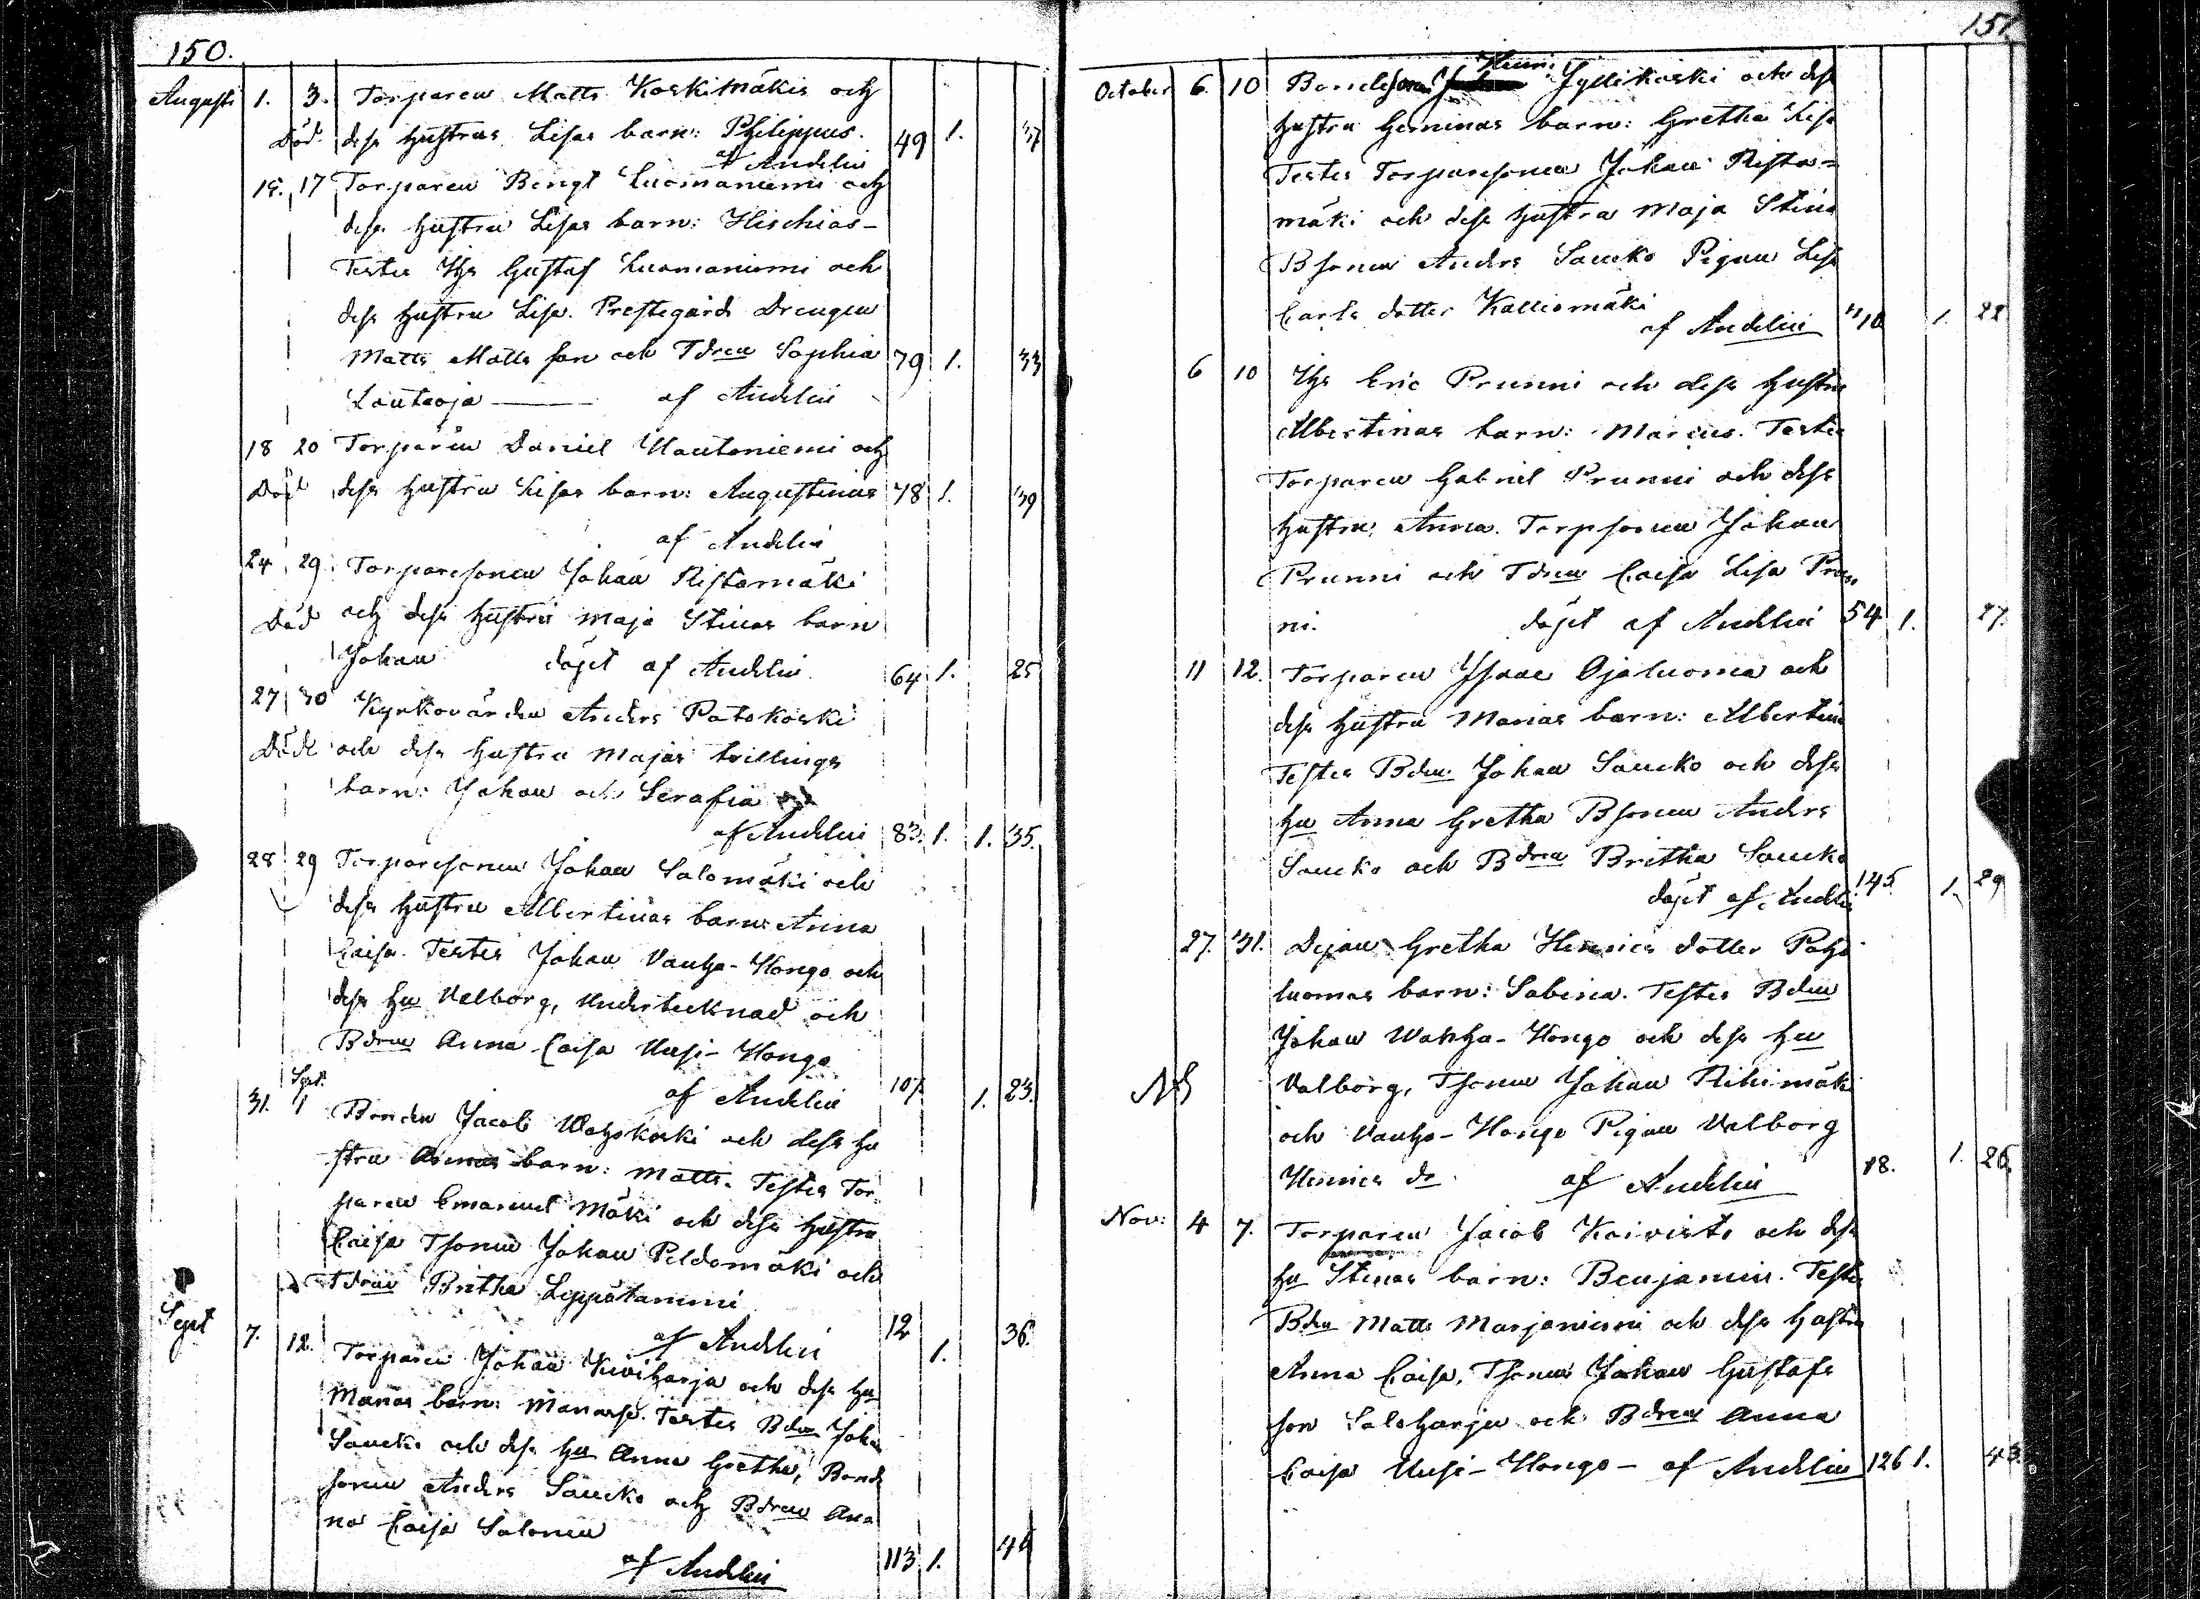 150.
Augusti 1. 3. Torparen Matts Koskimäkis och
Död dess hustrus Lisas barn: Philippus. 49 1. 37
af Andelin
15. 17 Torparen Bengt Luomaniemi och
dess hustru Lisas barn: Hischias-
Testes Hr Gustaf Luomaniemi och
dess hustru Lisa. Prestegårds Drengen
Matts Matts son och Tdren Sophia 79 1. 33
Lautaoja af Andelin
18 20 Torparen Daniel Hautaniemi och
Död dess hustru Lisas barn: Augustinus 78 1. 39
af Andelin
24 29 Torparesonen Johan Ristamäki
Död och dess hustru Maja Stinas barn
Johan döpt af Andelin 64 1. 25
27 30 Kyrkovärden Anders Patokoski
Döde och dess hustru Majas tvillings
barn: Johan och Serafia
af Andelin 83. 1. 1. 35.
28 29 Torparesonen Johan Salomäki och
dess hustru Albertinas barn: Anna
Caisa. Testes Johan Vanha-Hongo och
dess hu Valborg, Undertecknad och
Bdren Anna Caisa Uusi-Hongo
af Andelin 107. 1. 23.
31. Sept. 1 Bonden Jacob Watzskoski och dess hu
stru Annas barn: Matts. Testes Tor-
paren Emanuel Mäki och dess hustru
Caisa Tsonen Johan Peldomäki och
Tdren Britha Leppätammi
af Andelin 12 1. 36.
Sept 7. 12. Torparen Johan Kiviharja och dess hu
Marias barn: Manasse. Testes Bden Johan
Saucko och dess hu Anna Gretha, Bonde
sonen Anders Saucko och Bdren Ann
na Caisa Salonen
af Andelin 113 1. 44
151.
October 6. 10 Bondesonen Henric Jyllikoski och dess
hustru Heminas barn: Gretha Lisa
Testes Torparesonen Johan Rista-
mäki och dess hustru Maja Stina
Bsonen Anders Saucko Pigan Lisa
Carls dotter Kalliomäki
af Andelin 110 1. 22
6 10 Hr Eric Prunni och dess hustru
Albertinas barn: Marcus. Testes
Torparen Gabriel Prunni och dess
hustru Anna. Torpsonen Johan
Prunni och Tdren Caisa Lisa Prun
ni. döpt af Andelin 54 1. 27.
11 12. Torparen Isaac Ojaluoma och
dess hustru Marias barn: Albertina
Testes Bden. Johan Saucko och dess
hu Anna Gretha Bsonen Anders
Saucko och Bdren Britha Saucko
döpt af Andelin 145. 1. 29
27. 31. Dejan Gretha Henrics dotter Pohja
luomas barn: Sabina. Testes Bden
Johan Wanha-Hongo och dess hu
Valborg, Tsonen Johan Rihimäki
och Vanha-Hongo Pigan Valborg
Henrics dr af Andelin 18. 1. 26
Nov: 4 7. Torparen Jacob Koivisto och dess
hu Stinas barn: Benjamin. Testes
Bden Matts Marjaniemi och dess hustru
Anna Caisa, Tsonen Johan Gustafs
son Saloharju och Bdren Anna
Caisa Uusi-Hongo- af Andelin 126 1. 43.